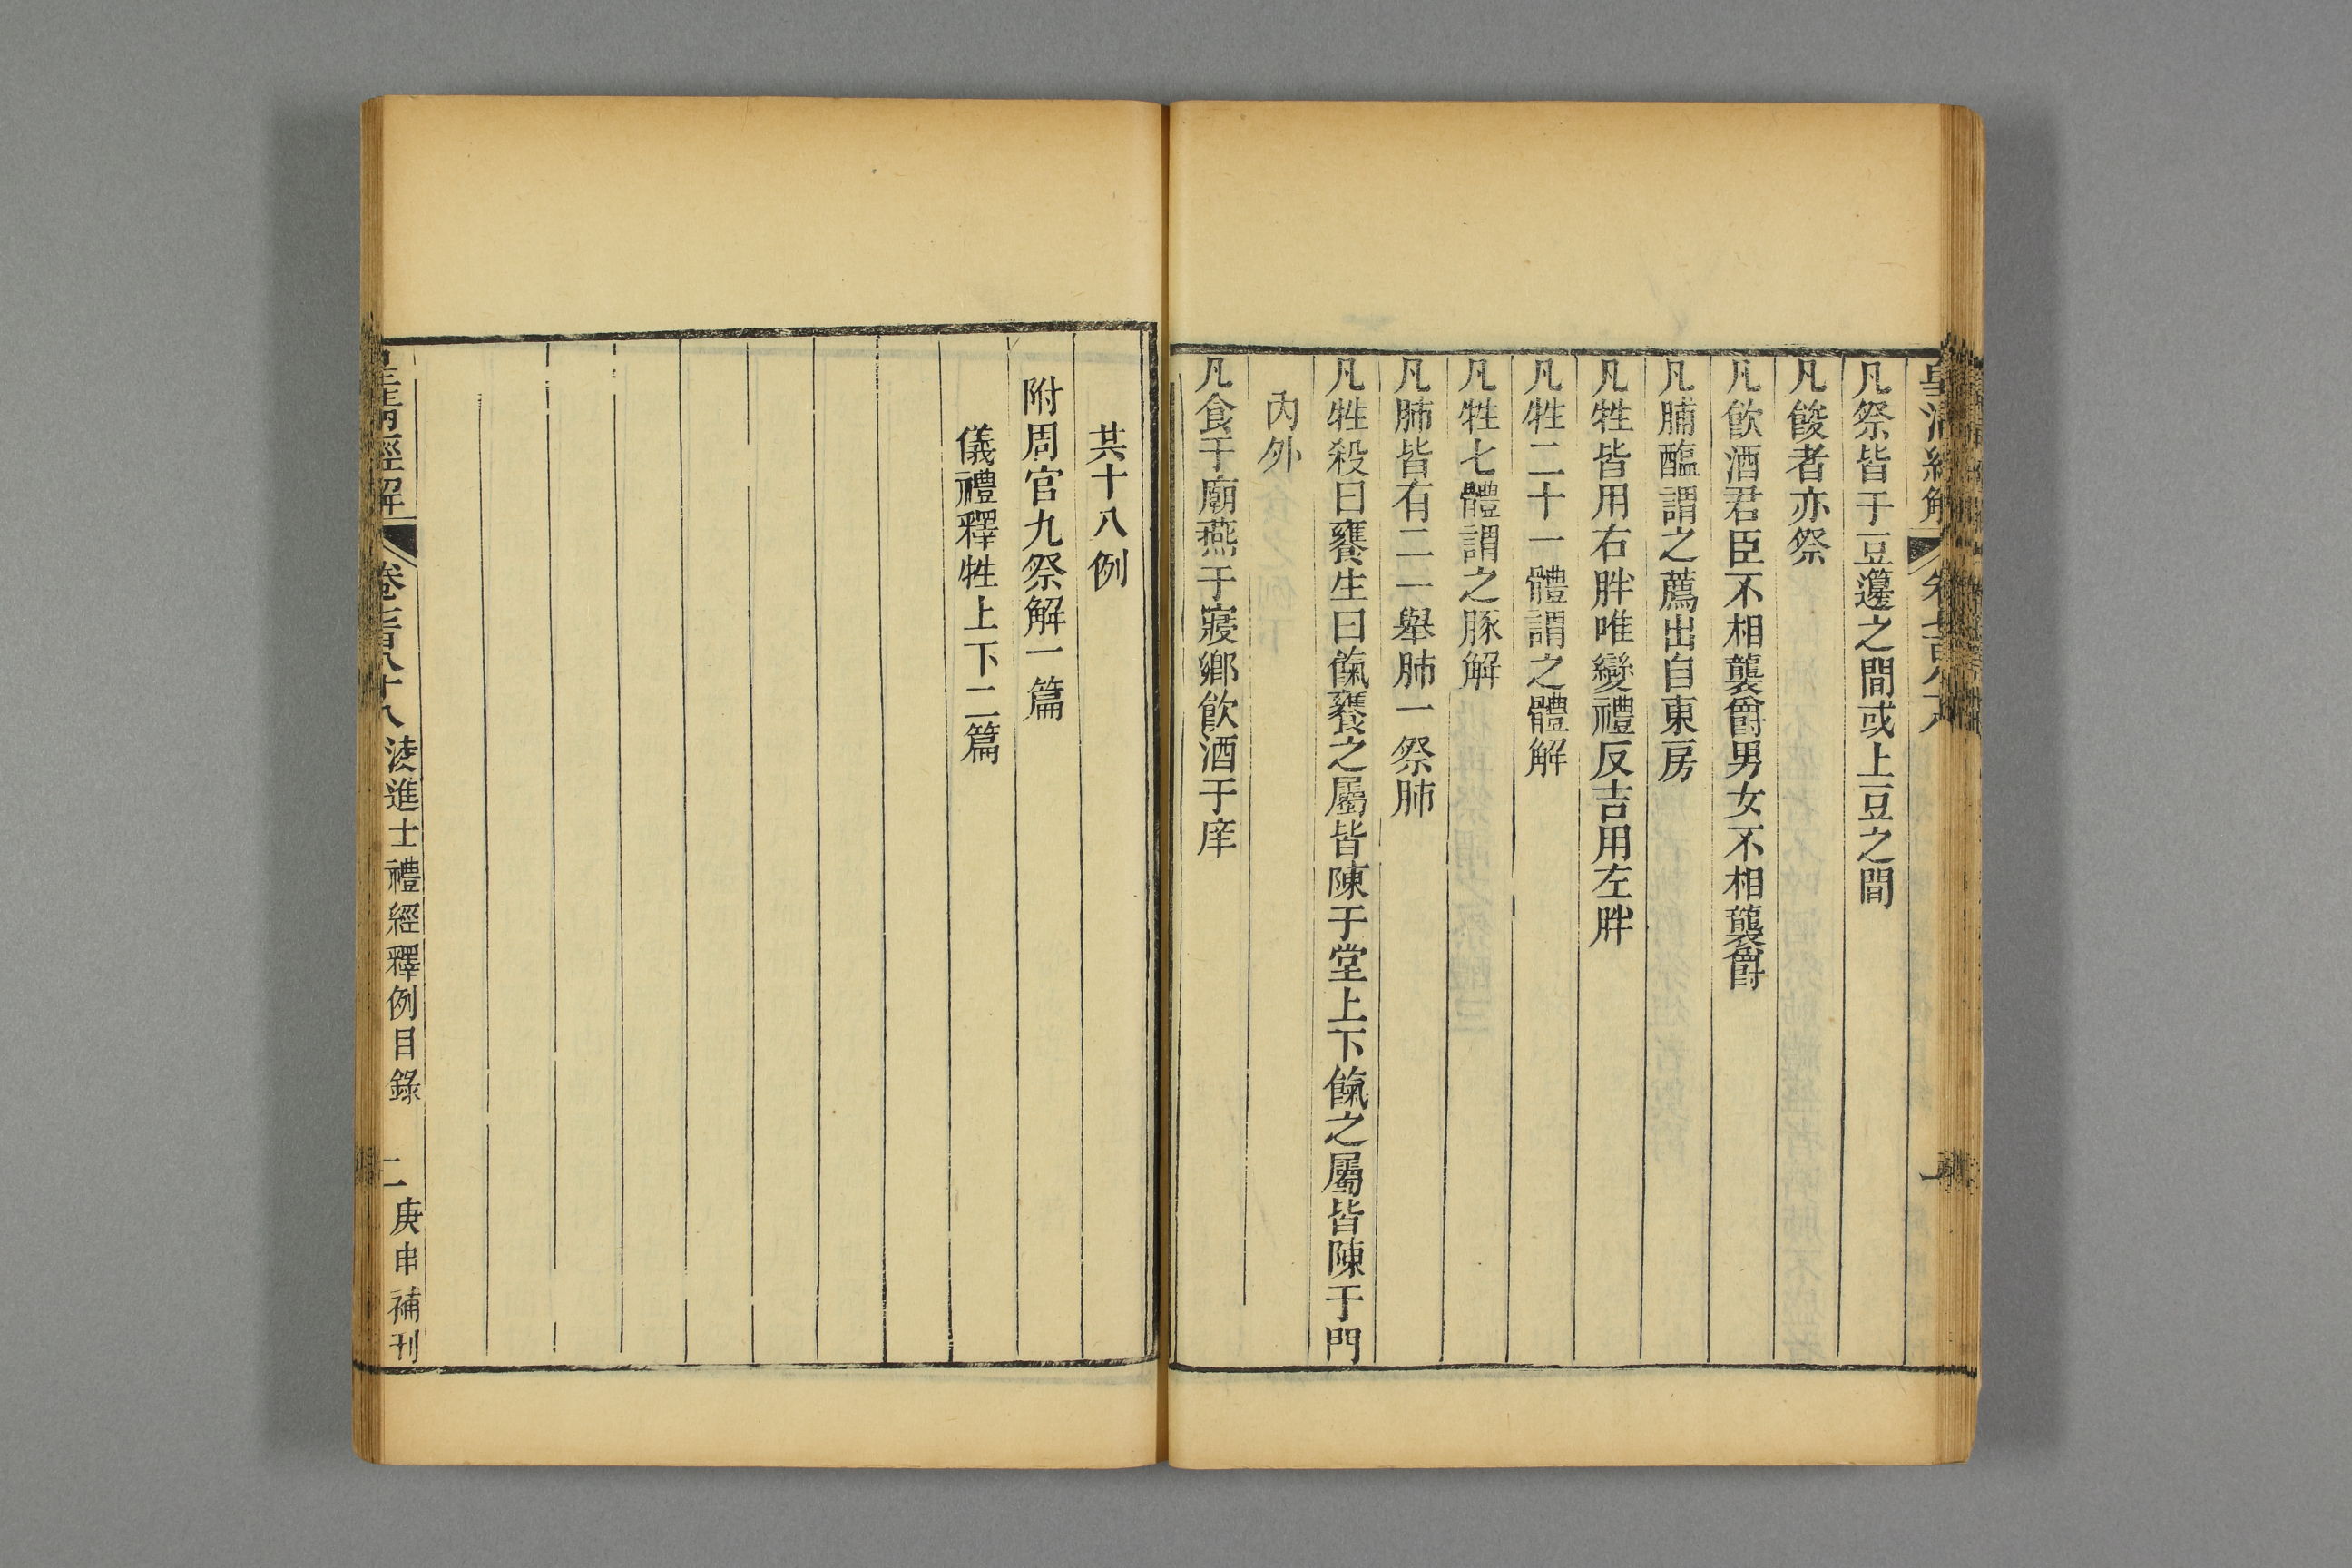 皇清經解
凡祭皆于豆籩之間或上豆之間
凡餕者亦祭
凡飮酒君臣不相襲爵男女不相襲爵
凡脯醢謂之薦出自東房
凡牲皆用右胖唯變禮反吉用左胖
凡牲二十一體謂之體解
凡牲七體謂之豚解
凡肺皆有二一舉肺一祭肺
凡牲殺曰饔生曰餼饔之屬皆陳于堂上下餼之屬皆陳于門
內外
凡食于廟燕于寢鄉飮酒于庠
共十八例
附周官九祭解一篇
儀禮釋牲上下二篇
皇淸經解 卷七百八十八 淩進士禮經釋例目錄 二 庚申補刊